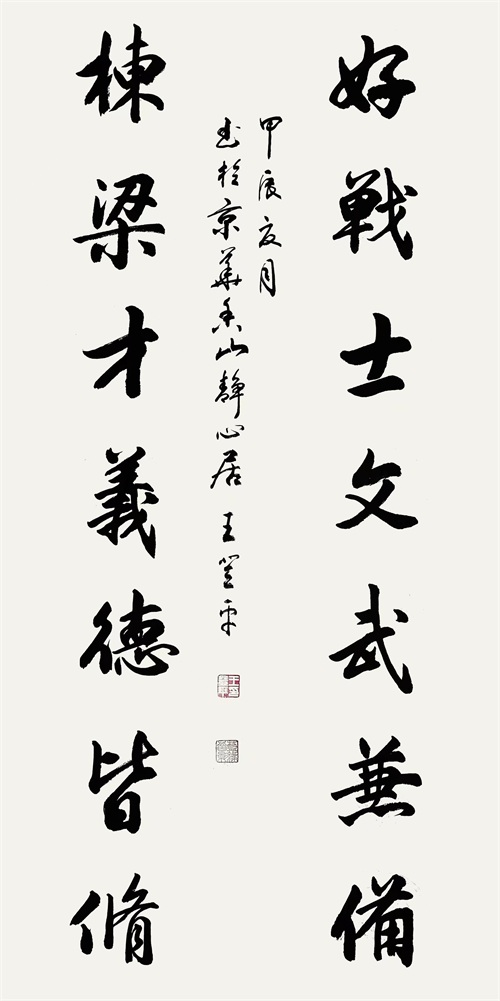 好戰士文武兼備
棟梁才義德皆脩
甲辰夏月
書於京華香山靜心居 王登平